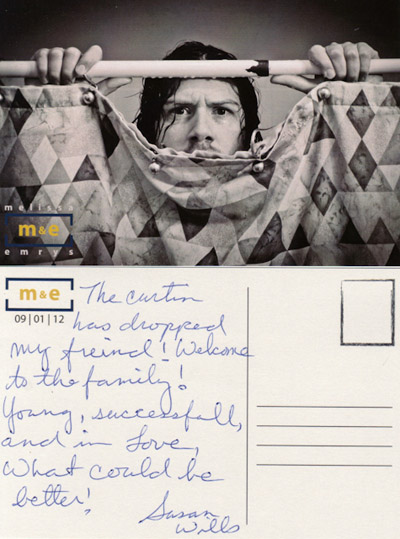 melissa
m&e
emrys
m&e
09|01|12
The curtin
has dropped
my freind! Welcome
to the family!
Young, successfull,
and in Love,
What could be
better!
Susan
Wills